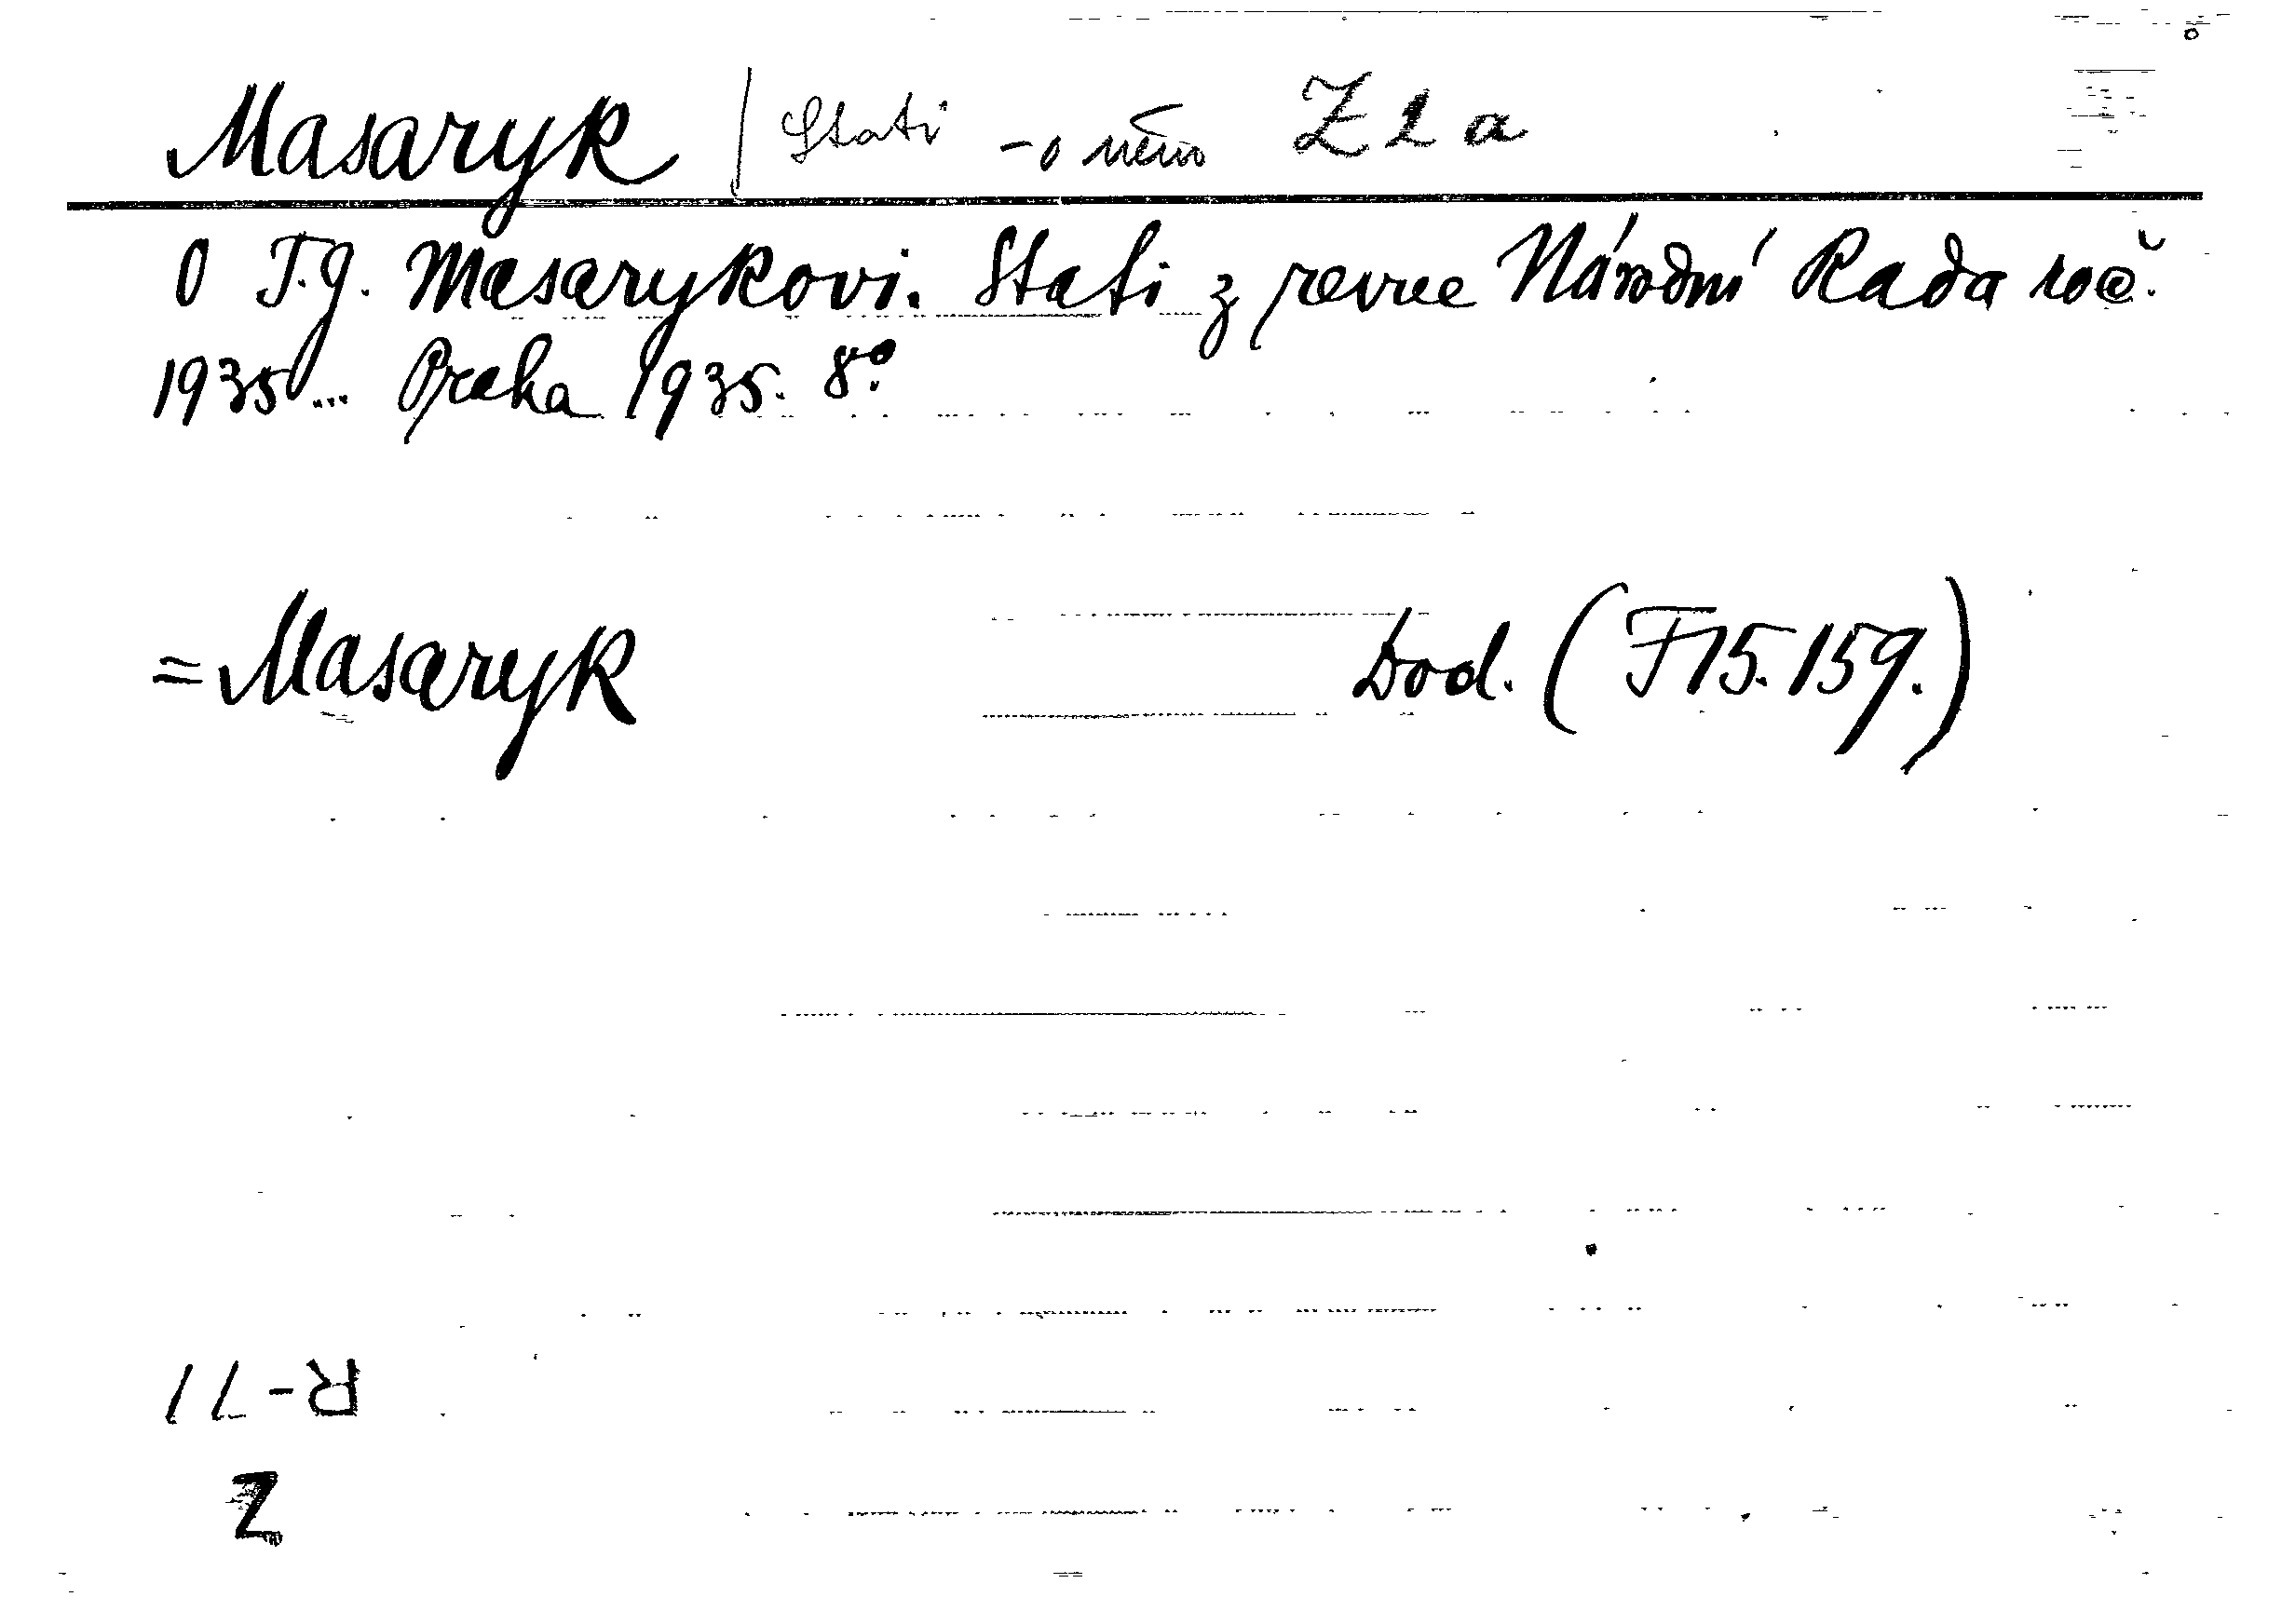 Masaryk / Stati - o něm Z 1 a
O T.G. Masarykovi. Stati z revue Národní Rada roč.
1935... Praha 1935. 8°.
= Masaryk Dod. (F 15.159.)
R-71
Z